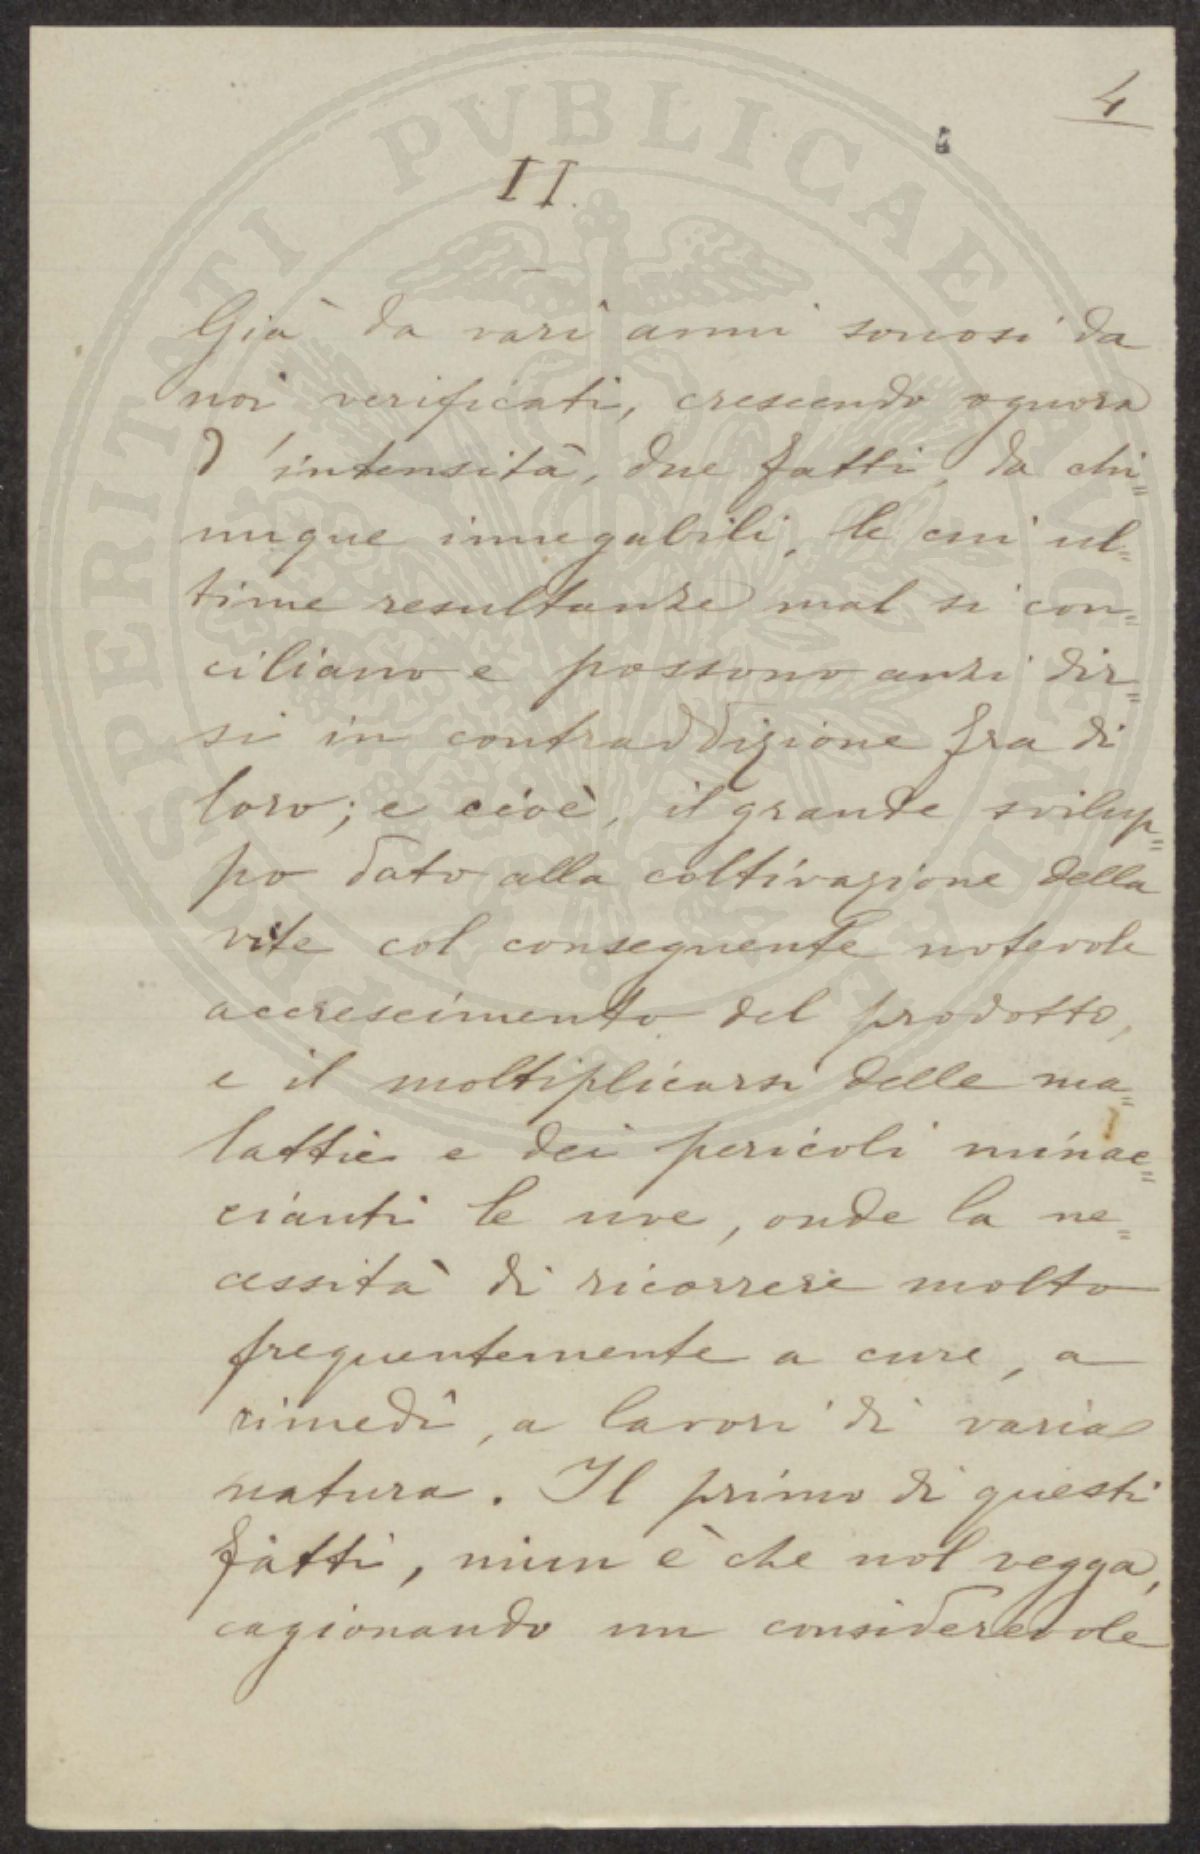 4
II.
Già da varî anni sonosi da
noi verificati, crescendo ognora
d'intensità, due fatti, da chi=
unque innegabili, le cui ul=
time resultanze mal si con=
ciliano e possono anzi dir=
si in contraddizione fra di
loro; e cioè, il grande svilup=
po dato alla coltivazione della
vite col conseguente notevole
accrescimento del prodotto,
e il moltiplicarsi delle ma=
lattie e dei pericoli minac=
cianti le uve, onde la ne=
cessità di ricorrere molto
frequentemente a cure, a
rimedî, a lavori di varia
natura. Il primo di questi
fatti, niun è che nol vegga,
cagionando un considerevole
PROSPERITATI PVBLICAE AVGENDAE